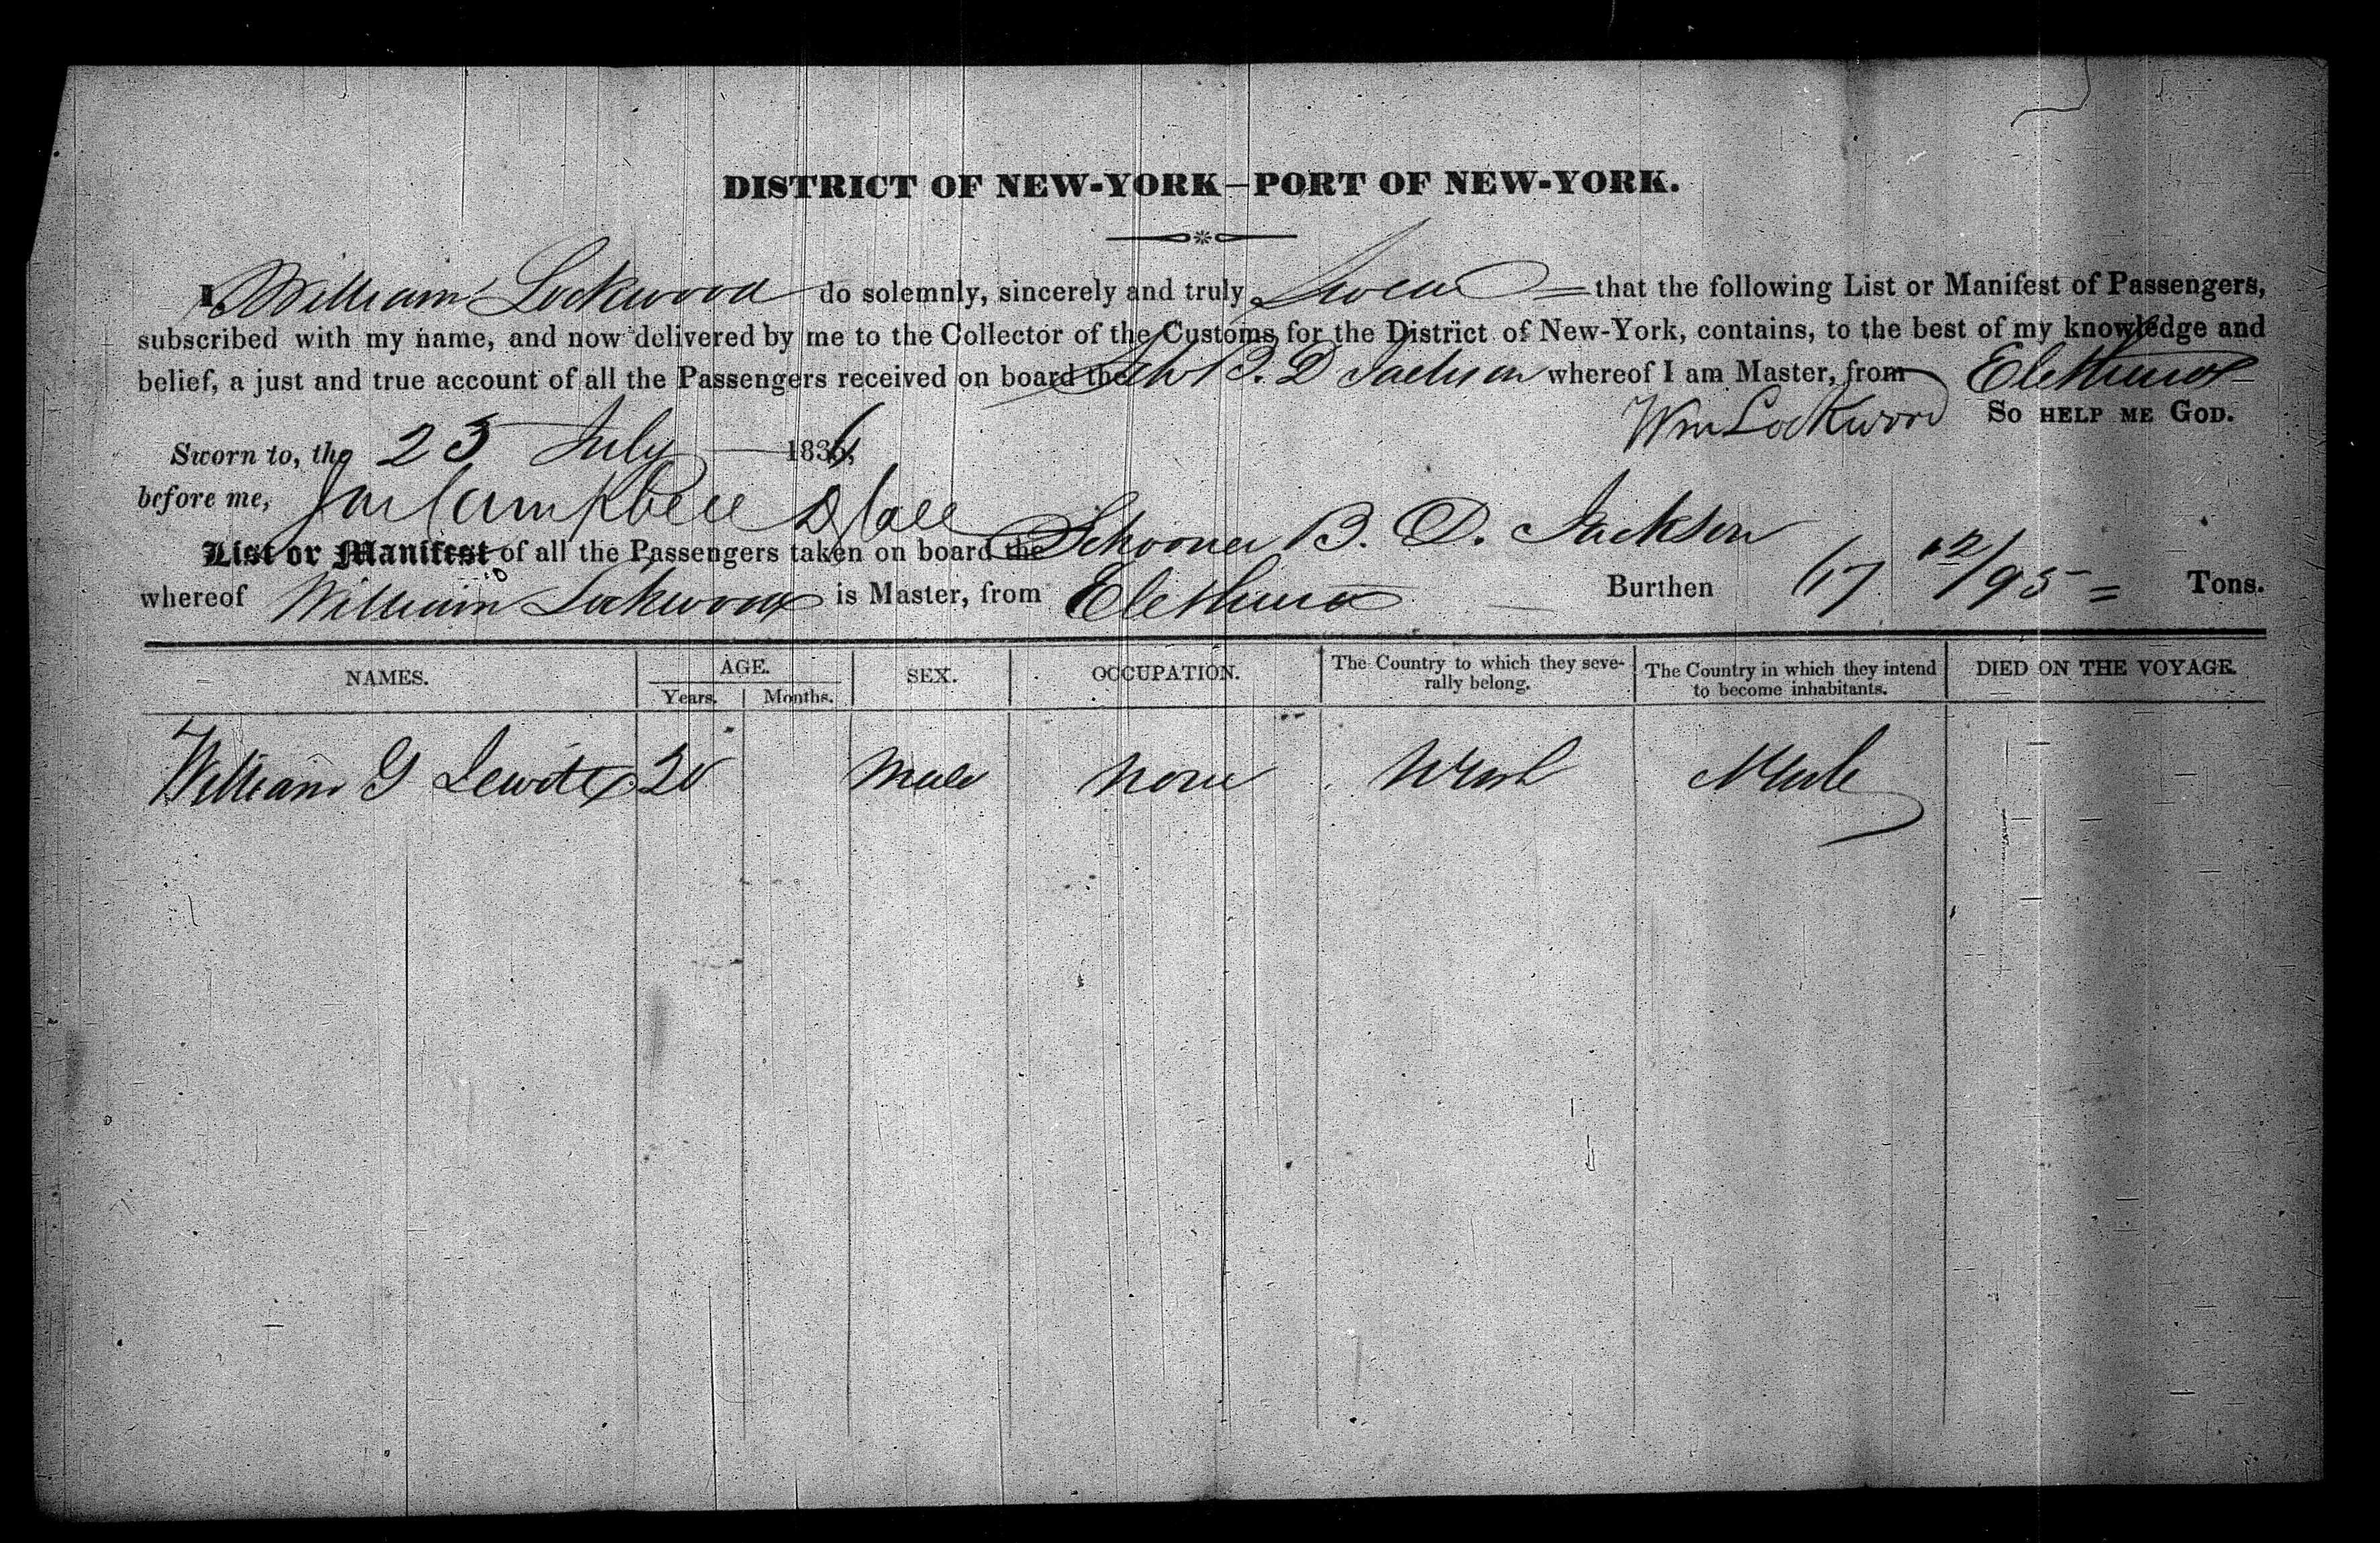 DISTRICT OF NEW-YORK—PORT OF NEW-YORK.
I William Lockwood do solemnly, sincerely and truly Swear that the following List or Manifest of Passengers,
subscribed with my name, and now delivered by me to the Collector of the Customs, for the District of New-York, contains, to the best of my knowledge and
belief, a just and true account of all the Passengers received on board the Schr B. D Jackson whereof I am Master, from Eletheura
Wm Lockwood So HELP ME GOD.
Sworn to, the 25 July 1836,
before me, Campbell D Coll
List or Manifest of all the Passengers taken on board the Schooner B. D. Jackson
whereof William Lockwood is Master, from Eletheura Burthen 117 12/95 Tons.
NAMES. AGE. SEX. OCCUPATION. The Country to which they severally belong. The Country in which they intend to become inhabitants. DIED ON THE VOYAGE.
Years. Months.
William G 20 Male None